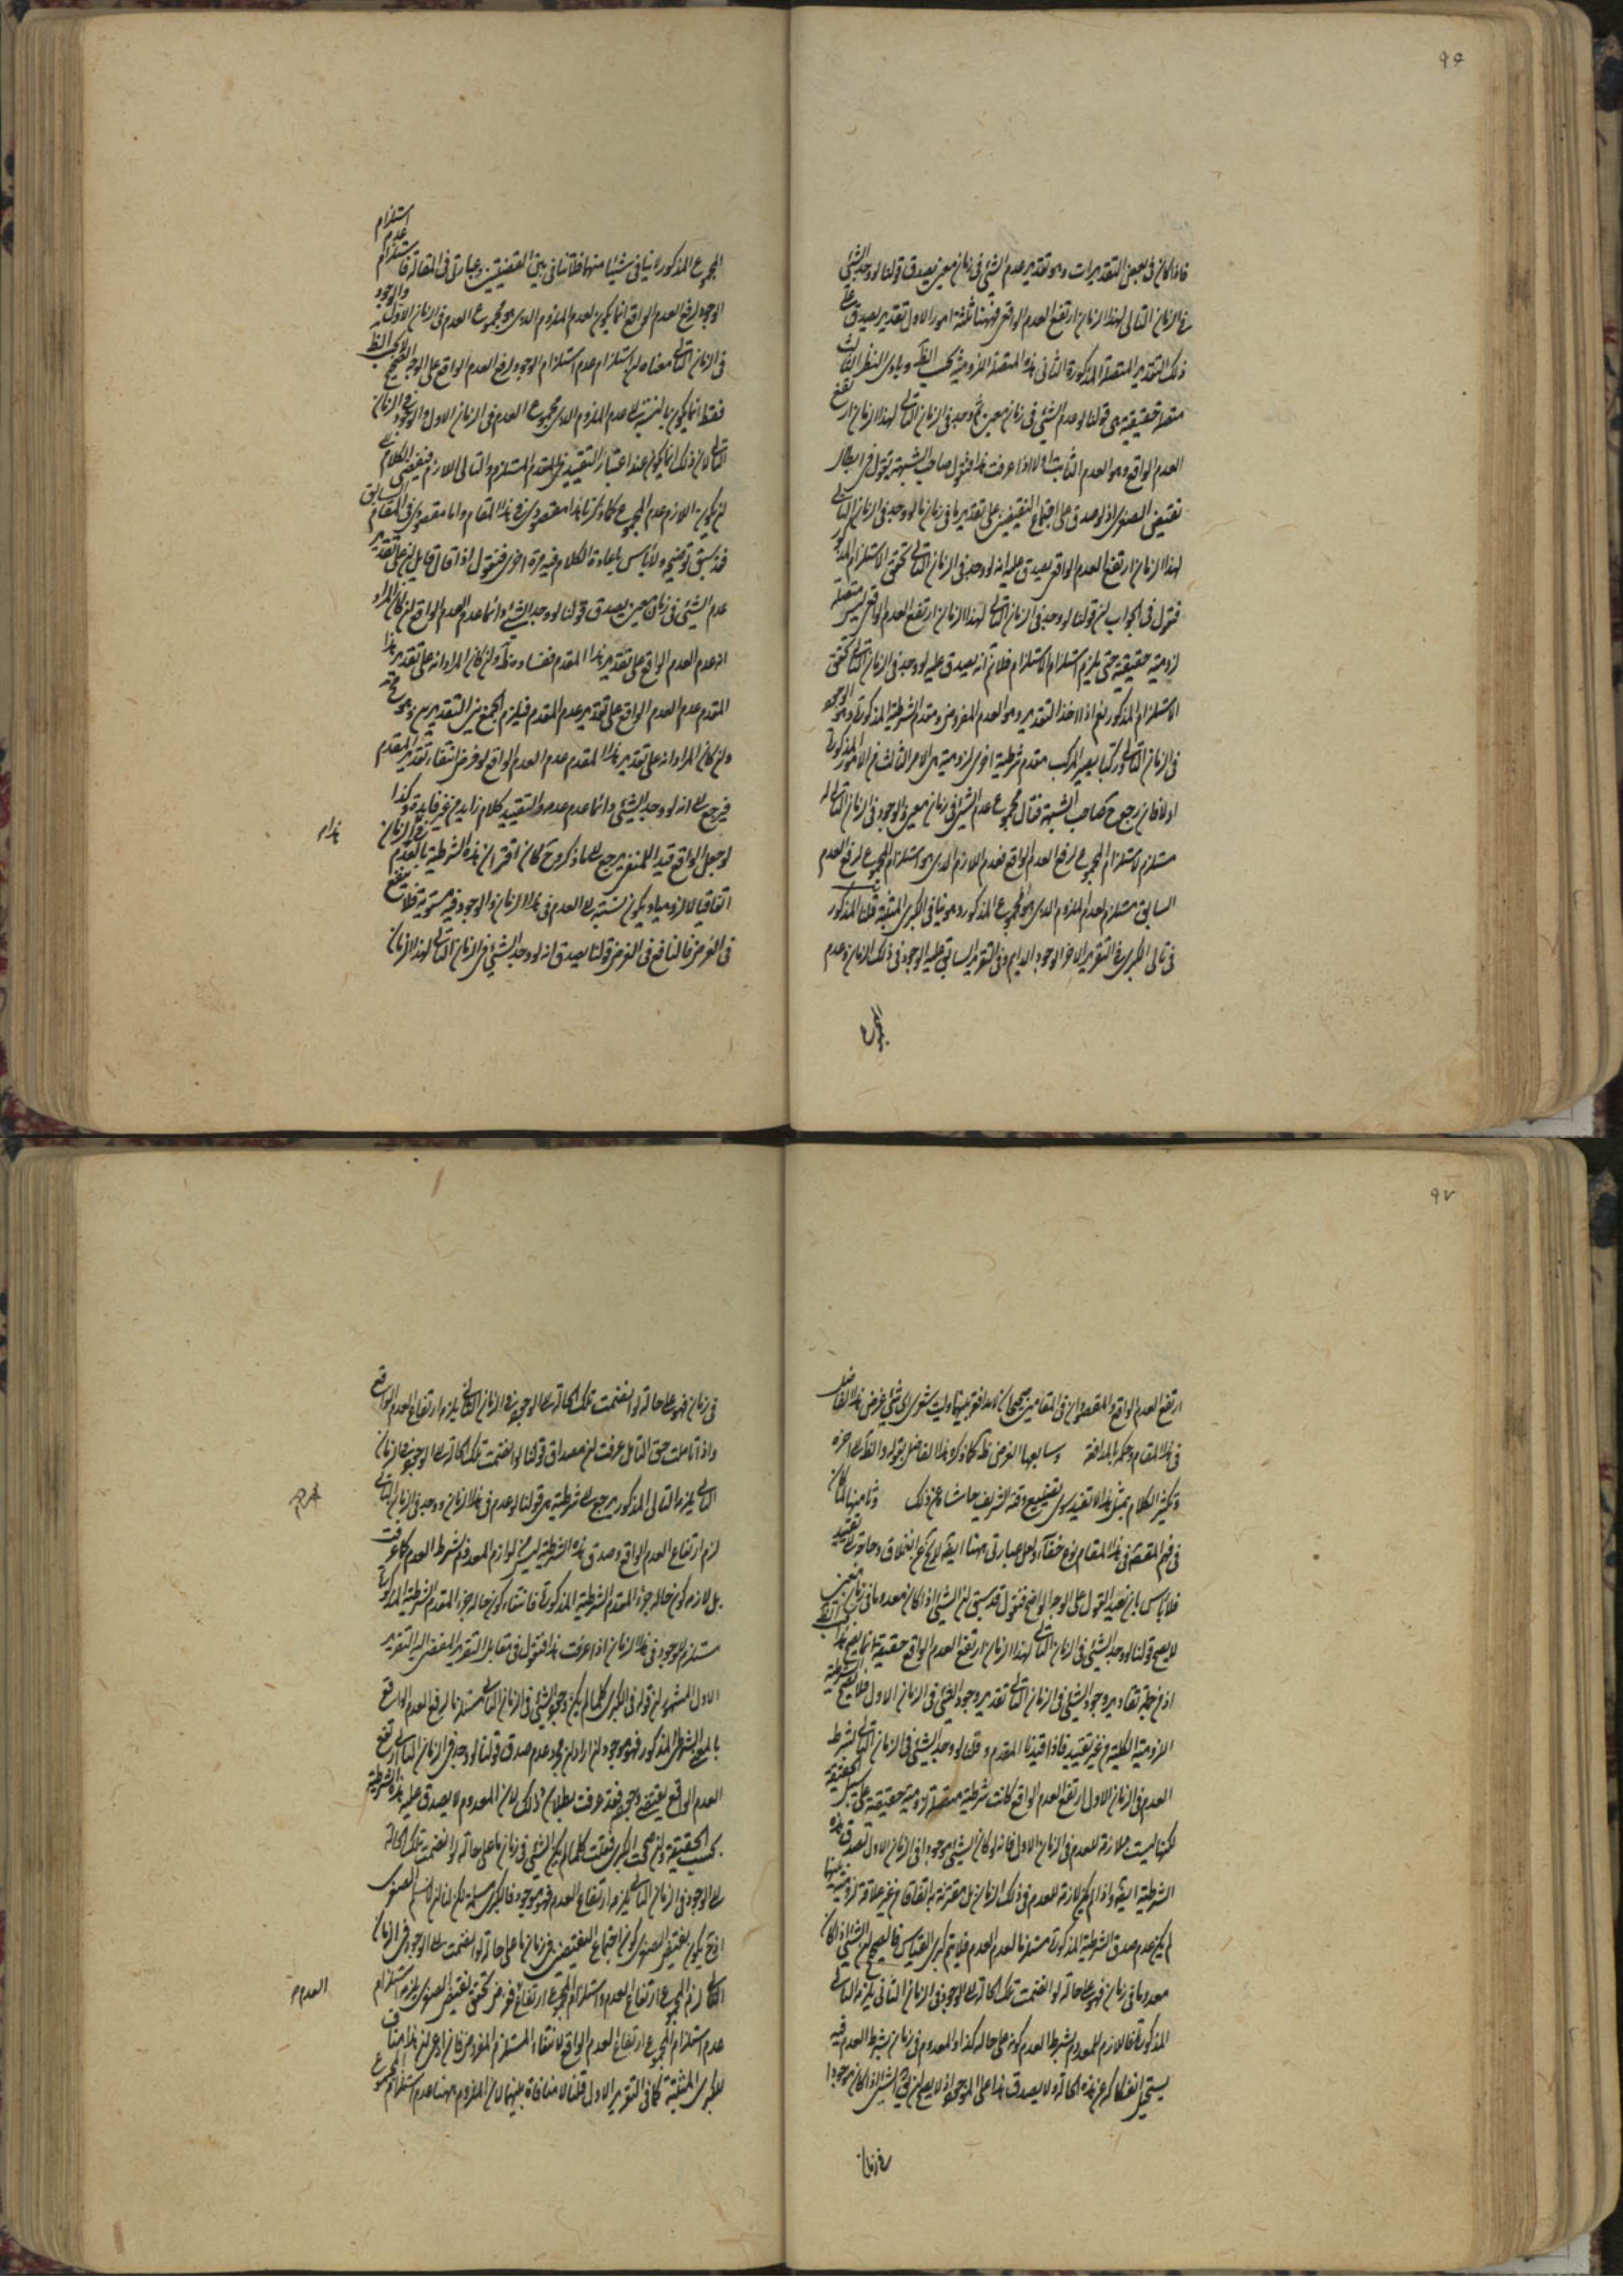 ٩٦
فاذا كان فى بعض التقديرات وهو تقدير عدم الشئ فى زمان معين يصدق قولنا لو وجد الشئ
فى الزمان التالى لهذا الزمان ارتفع العدم الواقعى فههنا ثلثة امور الاول تقدير يصدق على
ذلك التقدير المتصلة المذكورة الثانى هذه المتصلة اللزومية بحسب الظ وبادى النظر الثالث
متصلة حقيقية هى قولنا لو عدم الشئ فى زمان معين ثم وجد فى الزمان التالى لهذا الزمان ارتفع
العدم الواقع وهو العدم الثابت اولا اذا عرفت هذا فنقول صاحب الشبهة يقول فى ابطال
نقيض الصغرى اذ لو صدق على اجتماع النقيضين على تقدير ما فى زمان ما لو وجد فى الزمان التالى
لهذا الزمان ارتفع العدم الواقعى يصدق عليه انه لو وجد فى الزمان التالى تحقق الاستلزام المذكور
فنقول فى الجواب ان قولنا لو وجد فى الزمان التالى لهذا الزمان ارتفع العدم الواقعى ليس متصلة
لزومية حقيقية حتى يلزم استلزام الاستلزام فلا تم انه يصدق عليه لو وجد فى الزمان التالى تحقق
الاستلزام المذكور نعم اذا اخذ التقدير وهو العدم المفروض ومقدم الشرطية المذكورة وهو الوجود
فى الزمان التالى وركبا يصير المركب مقدم شرطية اخرى لزومية هى الامر الثالث من الامور المذكورة
اولا فان رجع صاحب الشبهة فقال مجموع عدم الشئ فى زمان معين والوجود فى الزمان التالى له
مستلزم لاستلزام المجموع لرفع العدم الواقع فعدم اللازم الذى هو استلزام المجموع لرفع العدم
السابق مستلزم لعدم الملزوم الذى هو المجموع المذكور وهو ينافى الكبرى المثبتة قلنا المذكور
فى تالى الكبرى فى التقرير الاخر الوجود الدايم وفى التقرير السابق عليه الوجود فى ذلك الزمان وعدم
المجموع
المجموع المذكور لا ينافى شيئا منهما فلا تنافى بين القضيتين وعبارتى فى المقالة فاستلزام استلزام عدم
الوجود لرفع العدم الواقع انما يكون لعدم الملزوم الذى هو مجموع العدم فى الزمان الاول والوجود
فى الزمان التالى معناه ان استلزام عدم استلزام الوجود لرفع العدم الواقع على الوجه الصحيح لا بحسب الظ
فقط انما يكون بالنسبة الى عدم الملزوم الذى مجموع العدم فى الزمان الاول والوجود فى الزمان
التالى لان ذلك انما يكون عند اعتبار التقييد فى المقدم المستلزم والتالى اللازم فيقتضى الكلام
ان يكون اللازم عدم المجموع كما ذكرنا هذا مقصودى فى هذا المقام واما مقصودى فى المقام السابق
فقد سبق توضيحه ولا باس باعادة الكلام فيه مرة اخرى فنقول اذا قال قايل ان على تقدير
عدم الشئ فى زمان معين يصدق قولنا لو وجد الشئ دائما عدم العدم الواقع ان كان المراد
انه عدم العدم الواقع على تقدير هذا المقدم ففساده ظ وان كان المراد انه على تقدير هذا
المقدم عدم العدم الواقع على تقدير عدم المقدم فيلزم الجمع بين التقديرين وهو مح
وان كان المراد انه على تقدير هذا المقدم عدم العدم الواقع لو فرض انتفاء تقدير المقدم
فيرجع الى انه لو وجد الشئ دائما عدم عدمه والتقييد كلام زايد من غير فايدة وكذا
لو جعل الواقع قيدا للمنفى يرجع الى ما ذكر وح كان اقتران هذه الشرطية بالعدم فى الزمان
هذا م
اتفاقيا لا لزوميا ويكون نسبته الى العدم فى هذا الزمان والوجود فيه مستوية فلا ينفع
فى الغرض فالنافع فى الغرض قولنا يصدق انه لو وجد الشئ فى الزمان التالى لهذا الزمان
٩٧
ارتفع العدم الواقع والمقصودان فى المقامين صحيحان لا مدافعة بينهما وليت شعرى اى شئ غرض هذا الفاضل
فى هذا المقام وحكمه بالمدافعة وسابعها الغرض ظ كما ذكره هذا الفاضل بقوله والظ الى اخره
وتكثير الكلام بمثل هذا لا تفيد سوى تضييع وقته الشريف حاشاه عن ذلك وثامنها لما كان
فى فهم المقصود فى هذا المقام نوع خفاء ولعل عبارتى ههنا ايضا لا يخ عن انغلاق وحاجة الى تقييد
فلا باس بان نعيد القول على الوجه الواضح فنقول قد سبق ان الشئ اذا كان معدوما فى زمان معين
لا يصح قولنا لو وجد الشئ فى الزمان التالى لهذا الزمان ارتفع العدم الواقع حقيقة انما يصح هذا بحسب الظ
اذ من جملة تقادير وجود الشئ فى الزمان التالى تقدير وجود الشئ فى الزمان الاول فلا يصح الشرطية
اللزومية الكلية من غير تقييد فاذا قيدنا المقدم وقلنا لو وجد الشئ فى الزمان التالى بشرط
العدم فى الزمان الاول ارتفع العدم الواقع كانت شرطية متصلة لزومية حقيقية على سبيل الحقيقة
لكنها ليست ملازمة للعدم فى الزمان الاول فانه لو كان الشئ موجودا فى الزمان الاول تصدق هذه
الشرطية ايضا واذا لم يكن لازمة للعدم فى ذلك الزمان بل مقترنة به اتفاقا من غير علاقة لزومية بينهما
لم يكن عدم صدق الشرطية المذكورة مستلزما لعدم العدم فلا يتم كبرى القياس فالصحيح ان الشئ اذا كان
معدوما فى زمان فهو على حالة لو انضمت تلك الحالة الى الوجود فى الزمان الثانى يلزمه التالى
المذكورة فاللازم للمعدوم بشرط العدم كونه على حاله كذا والمعدوم فى زمان بشرط العدم فيه
يستحيل انفكاكه عن هذه الحالة ولا يصدق هذا على الموجود اذ لا يصح ان يق الشئ اذا كان موجودا
فى زمان
فى زمان فهو على حالة لو انضمت تلك الحالة الى الوجود فى الزمان التالى يلزم ارتفاع العدم الواقع
واذا تاملت حق التامل عرفت ان مصداق قولنا لو انضمت تلك الحالة الى الوجود فى الزمان
التالى يلزمه التالى المذكور يرجع الى شرطية هى قولنا لو عدم فى هذا الزمان ووجد فى الزمان التالى
لزم ارتفاع العدم الواقع وصدق هذه الشرطية ليس من لوازم المعدوم بشرط العدم كما عرفت
بل لازمه كون حاله جزء المقدم الشرطية المذكورة فانتفاء كون حاله جزء المقدم الشرطية المذكورة
مستلزم للوجود فى هذا الزمان اذا عرفت هذا فنقول فى مقابل التقرير المفضى اليه التقرير
الاول المشهور ان قوله فى الكبرى كلما لم يكن وجود الشئ فى الزمان التالى مستلزما لرفع العدم الواقع
بالمعنى الشرطى المذكور فهو موجود ان اراد ان مجرد عدم صدق قولنا لو وجد فى الزمان التالى ارتفع
العدم الواقع يقتضى وجوده فقد عرفت بطلان ذلك لان المعدوم لا يصدق عليه هذه الشرطية
بحسب الحقيقة وان صححت الكبرى فقلت كلما لم يكن الشئ فى زمان ما على حالة لو انضمت تلك الحالة
الى الوجود فى الزمان التالى يلزمه ارتفاع العدم فهو موجود فالكبرى مسلمة لكن لنا ان لا نسلم الصغرى
اذ ح يكون نقيض الصغرى كون اجتماع النقيضين فى زمان ما على حالة لو انضمت الى الوجود فى الزمان
التالى لزم المجموع ارتفاع العدم واستلزام المجموع ارتفاع فرض تحقق نقيض الصغرى يلزم استلزام
العدم م
عدم استلزام المجموع ارتفاع العدم الواقع لانتفاء المستلزم المفروض فان ادعى ان هذا مناف
للكبرى المثبتة كما فى التقرير الاول قلنا لا منافاة بينهما لان الملزوم ههنا عدم استلزام المجموع